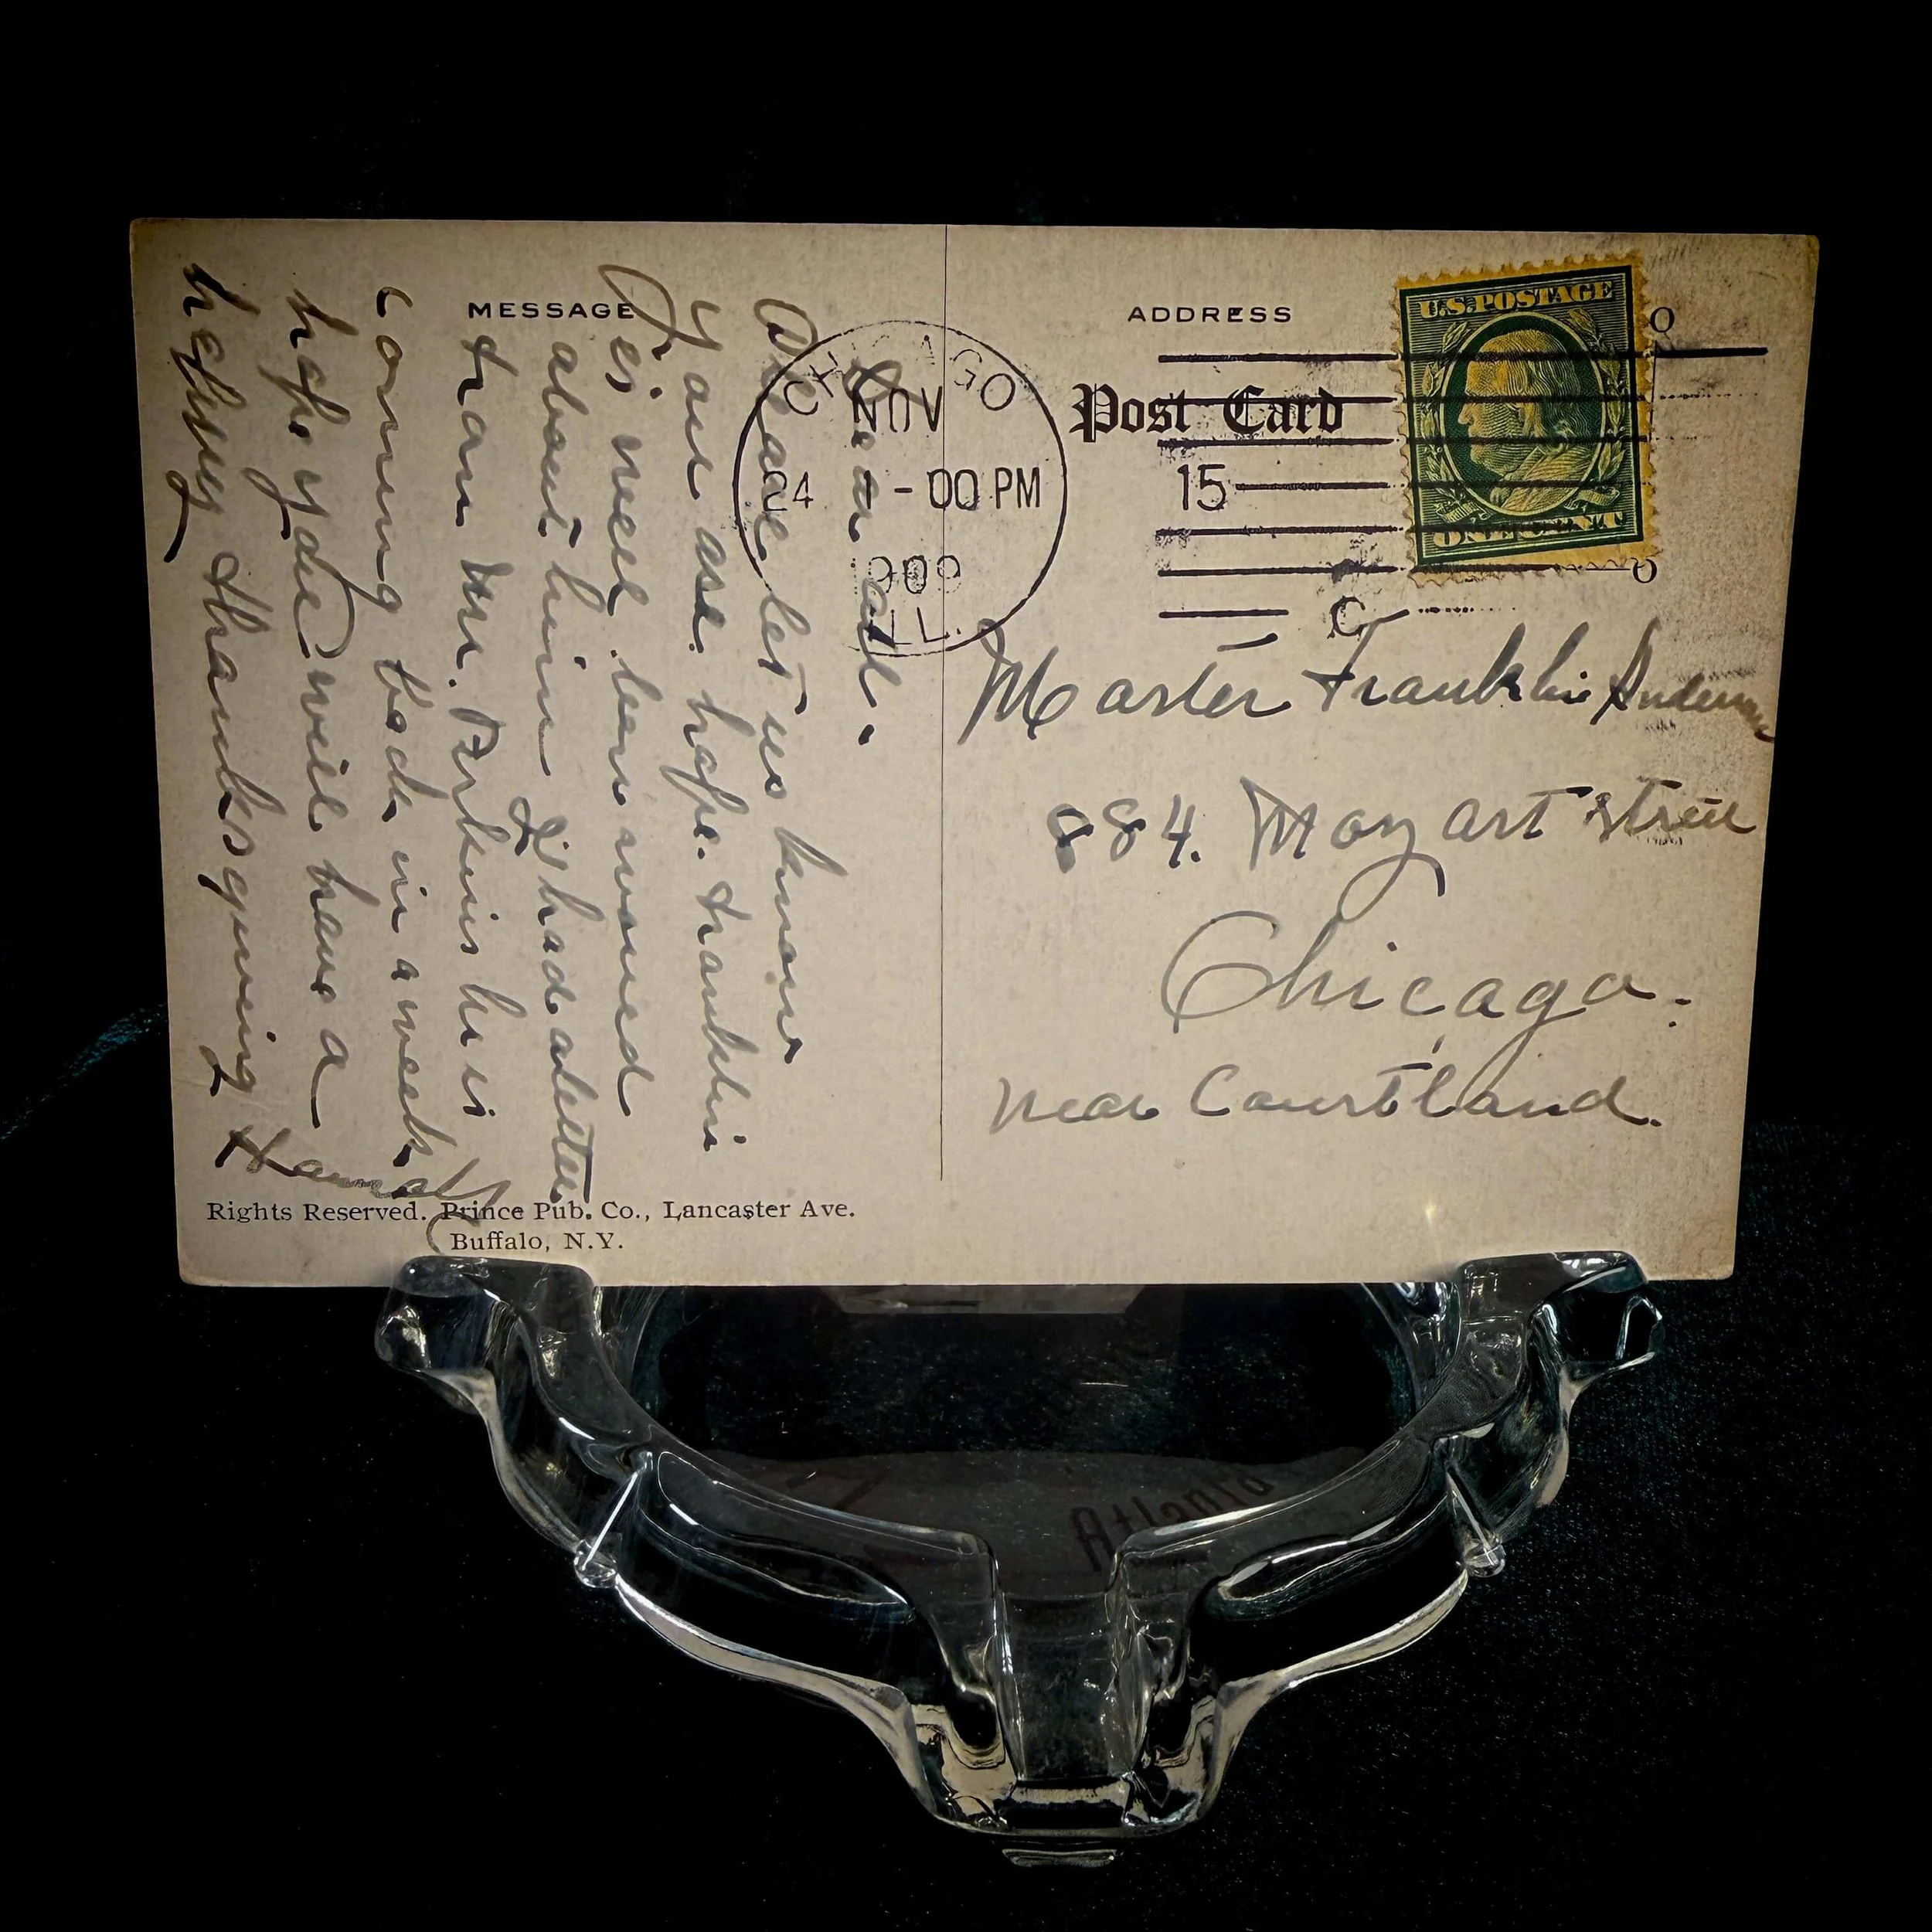 MESSAGE
Dear all.
Please let us know
you are. hope. Franklin
is well. been worried
about him I had a letter
from Mr. Perkins he is
coming back in a week
hope you will have a
happy thanksgiving
Rights Reserved. Prince Pub. Co., Lancaster Ave.
Buffalo, N.Y.
CHICAGO
NOV
24 -00 PM
1909
ILL.
15
C
ADDRESS
Post Card
U.S. POSTAGE
ONE CENT
Master Franklin
884. Mozart Street
Chicago.
near Courtland.
Atlanta